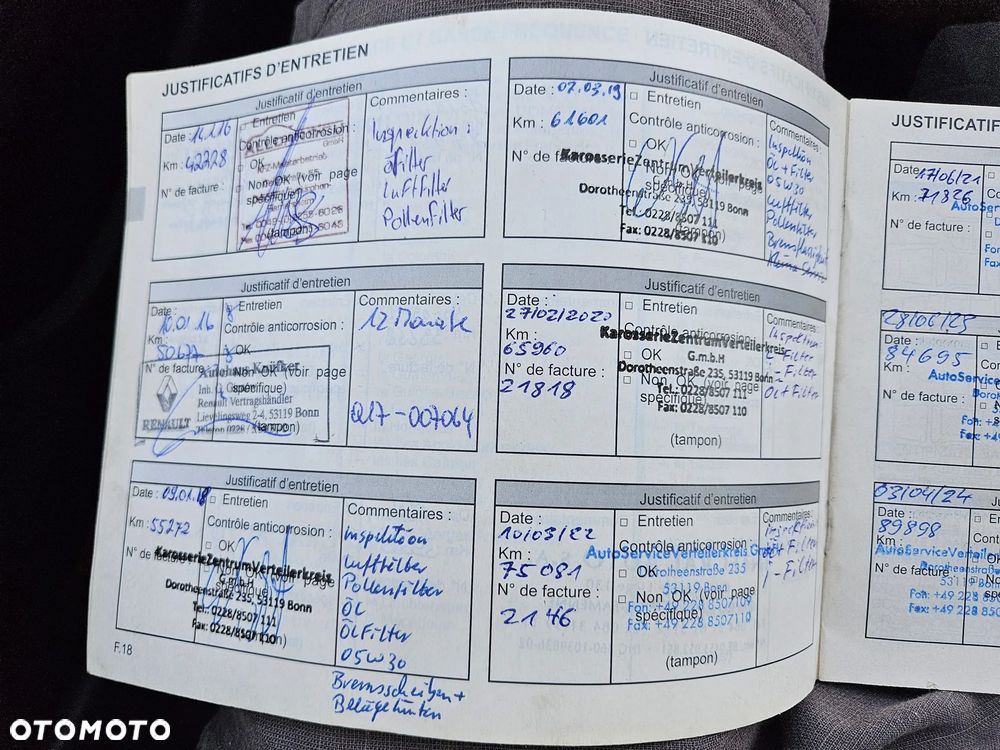 JUSTIFICATIFS D'ENTRETIEN
Justificatif d'entretien
Date : 
Km : 42228
N° de facture :
Entretien
Contrôle anticorrosion :
OK
Non OK (voir page
spécifique)
(tampon)
Commentaires :
Inspektion :
Ölfilter
Luftfilter
Pollenfilter
Justificatif d'entretien
Date : 10.01.16
Km : 50677
N° de facture :
Entretien
Contrôle anticorrosion :
OK
Non OK (voir page
spécifique)
(tampon)
Renault Vertragshändler
Lievelingsweg 2-4, 53119 Bonn
RENAULT
Commentaires :
12 Monate
Q17-007064
Justificatif d'entretien
Date : 09.01.18
Km : 55272
N° de facture
Entretien
Contrôle anticorrosion :
OK
Non OK (voir page
spécifique)
(tampon)
KarosserieZentrumVerteilerkreis
G.m.b.H
Dorotheenstraße 235, 53119 Bonn
Tel.: 0228/8507 111
Fax: 0228/8507 110
Commentaires :
Inspektion
Luftfilter
Pollenfilter
ÖL
ÖLFilter
05W30
Bremsscheiben +
Beläge hinten
F.18
Justificatif d'entretien
Date : 07.03.19
Km : 61601
N° de facture
Entretien
Contrôle anticorrosion :
OK
Non OK (voir page
spécifique)
(tampon)
KarosserieZentrumVerteilerkreis
Dorotheenstraße 235, 53119 Bonn
Tel.: 0228/8507 111
Fax: 0228/8507 110
Commentaires :
Inspektion
Öl + Filter
05W30
Luftfilter
Pollenfilter
Bremsflüssigkeit
Justificatif d'entretien
Date :
27/02/2020
Km :
65960
N° de facture :
21818
Entretien
Contrôle anticorrosion :
OK
Non OK (voir page
spécifique)
(tampon)
KarosserieZentrumVerteilerkreis
G.m.b.H
Dorotheenstraße 235, 53119 Bonn
Tel.: 0228/8507 111
Fax: 0228/8507 110
Commentaires :
Inspektion
i-Filter
Öl + Filter
Justificatif d'entretien
Date :
10/03/22
Km :
75081
N° de facture :
2146
Entretien
Contrôle anticorrosion :
OK
Non OK (voir page
spécifique)
(tampon)
AutoServiceVerteilerkreis
Dorotheenstraße 235
53119 Bonn
Fon: +49 228 8507109
Fax: +49 228 8507110
Commentaires :
Inspektion
Öl + Filter
i-Filter
JUSTIFICATIF
Date : 17/06/21
Km : 71326
N° de facture :
AutoServ
28/06/23
84695
N° de facture :
AutoServi
Fon: +49
Fax: +49
03/04/24
89898
N° de facture
AutoServiceVerteiler
Dorotheenstraße
53119 B
Fon: +49 228
Fax: +49 228
OTOMOTO